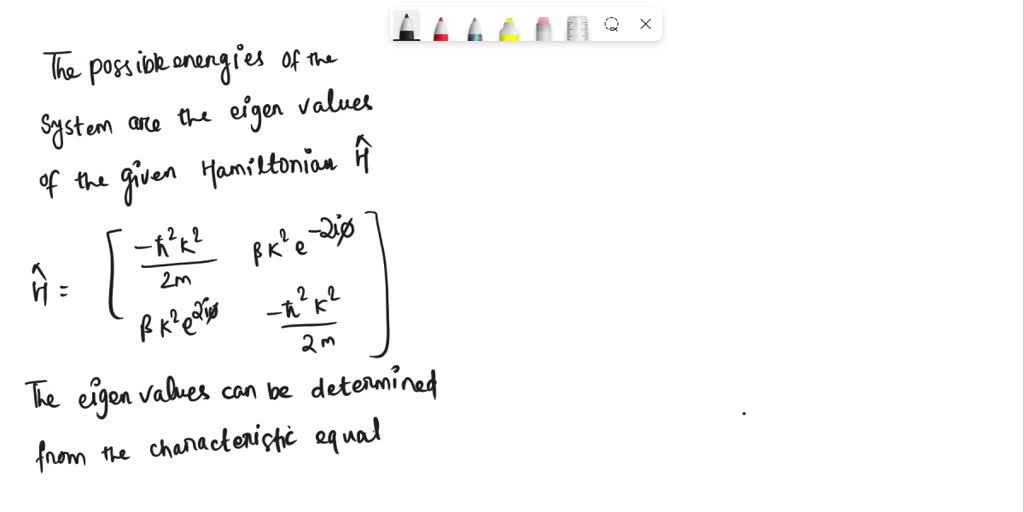 The possible energies of the
system are the eigen values
of the given Hamiltonian Ĥ
Ĥ = [ -ħ²k²/2m βk² e^-2iφ
βk² e^2iφ -ħ²k²/2m ]
The eigen values can be determined
from the characteristic equal